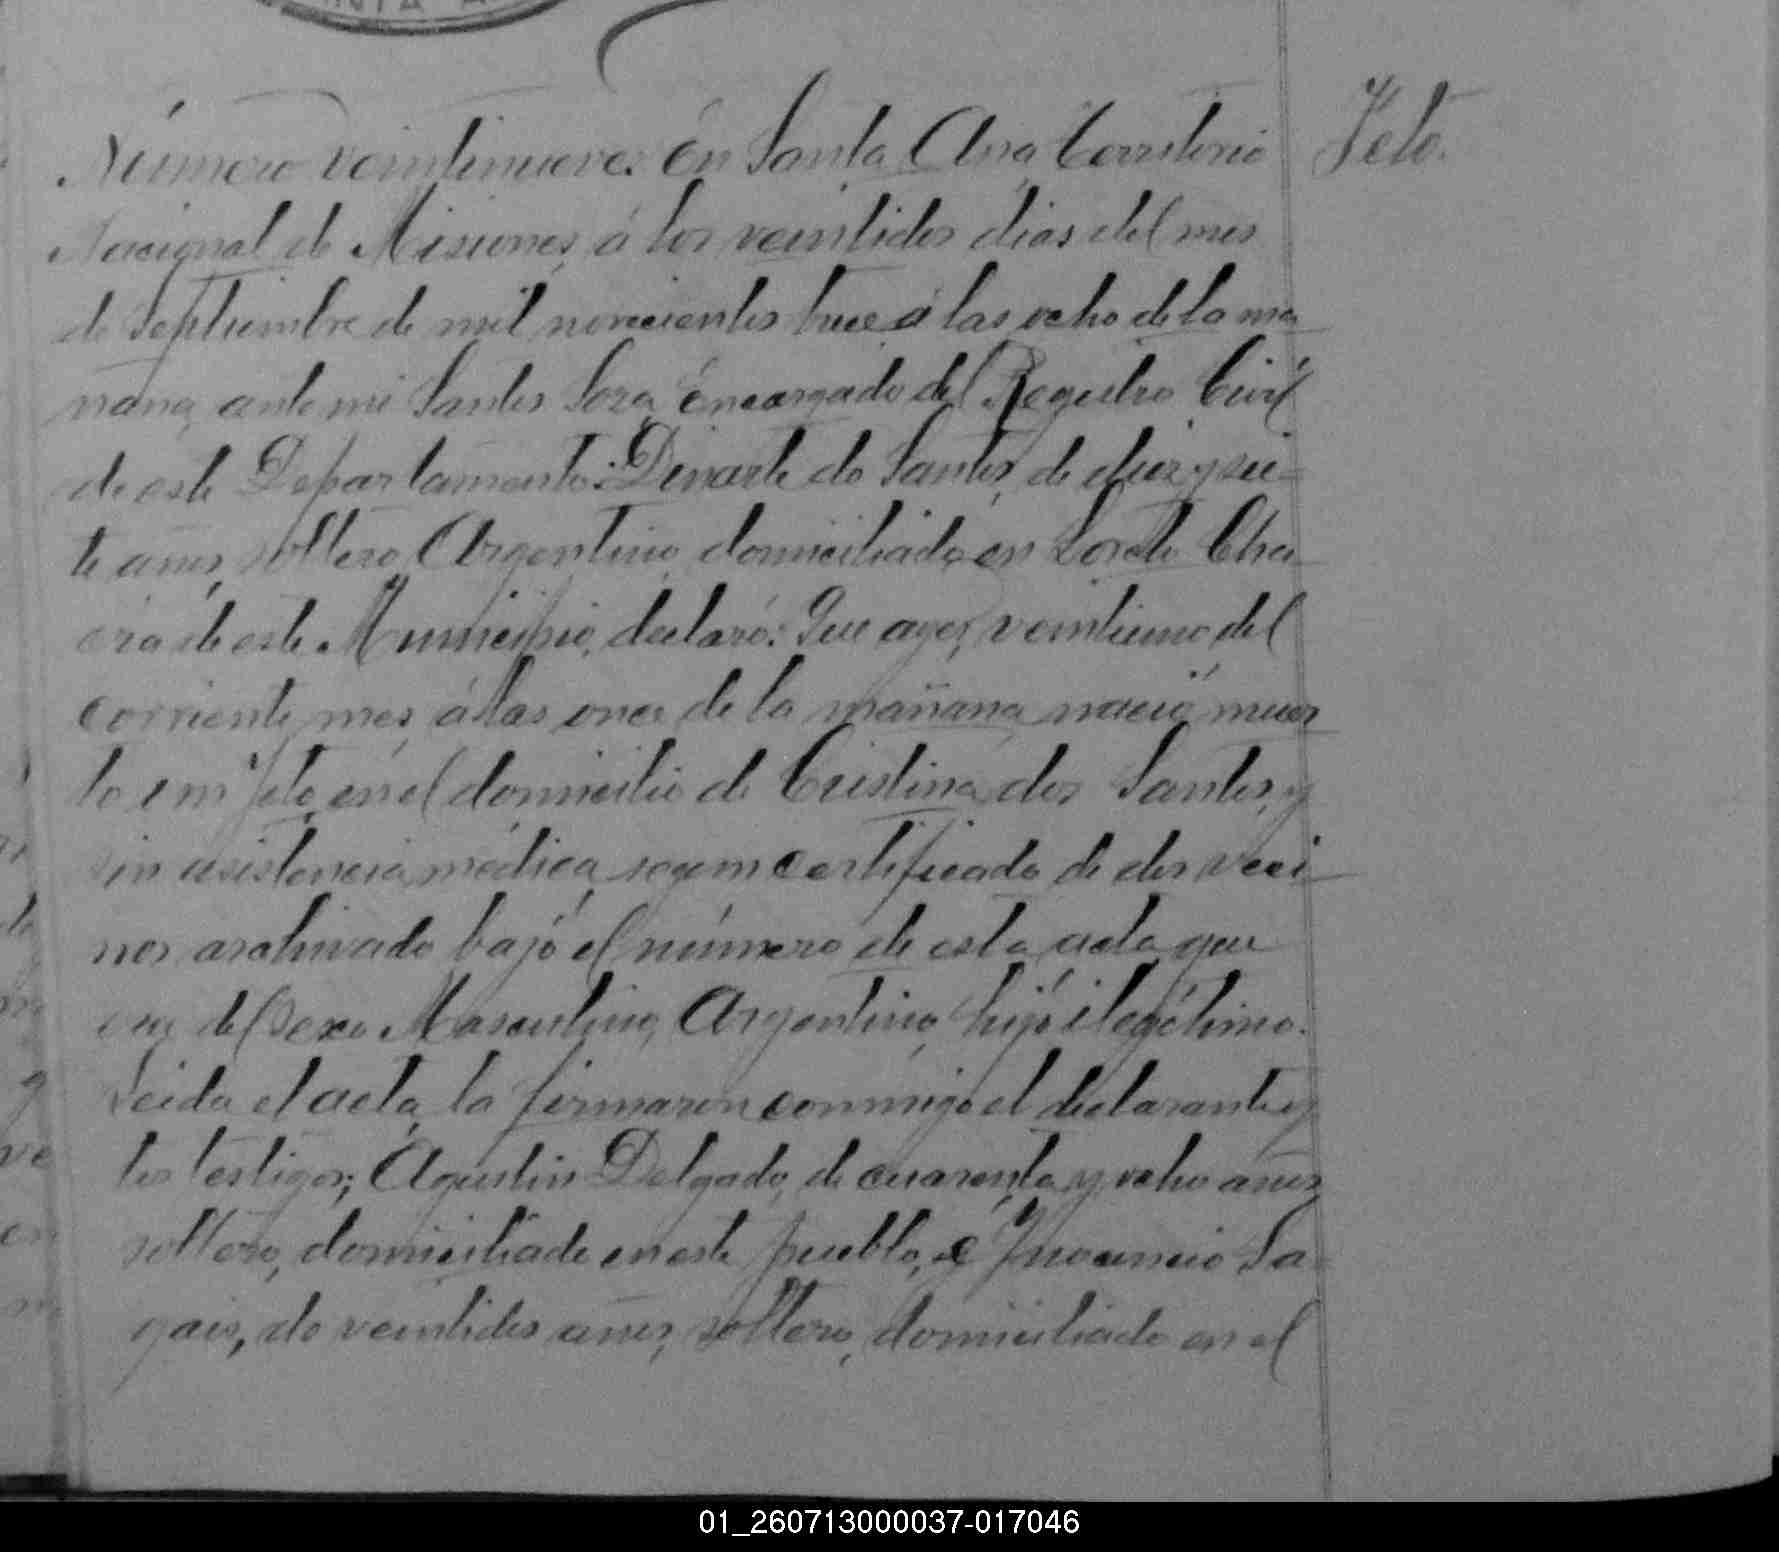 Feto.
Número veintinueve: En Santa Ana, Territorio
Nacional de Misiones, á los veintidos dias del mes
de Septiembre de mil novecientos trece á las ocho de la ma
ñana, ante mi Santos Soza, Encargado del Registro Civil
de este Departamento: Dinarte do Santos, de diez y sie=
te años, soltero, Argentino, domiciliado en Loreto Cha
cra de este Municipio, declaró: Que ayer, veintiuno del
corriente mes, á las once de la mañana, nació muer
to un feto, en el domicilio de Cristina dos Santos, y
sin asistencia médica, segun certificado de dos veci
nos archivado bajó el número de esta acta, que
era del sexo Masculino, Argentino, hijo ilegítimo.
Leida el acta, la firmaron conmigo el declarante y
los testigos; Agustin Delgado, de cuarenta y ocho años,
soltero, domiciliado en este pueblo, é Inocencio Sa=
gais, de veintidos años, soltero, domiciliado en el
01_260713000037-017046